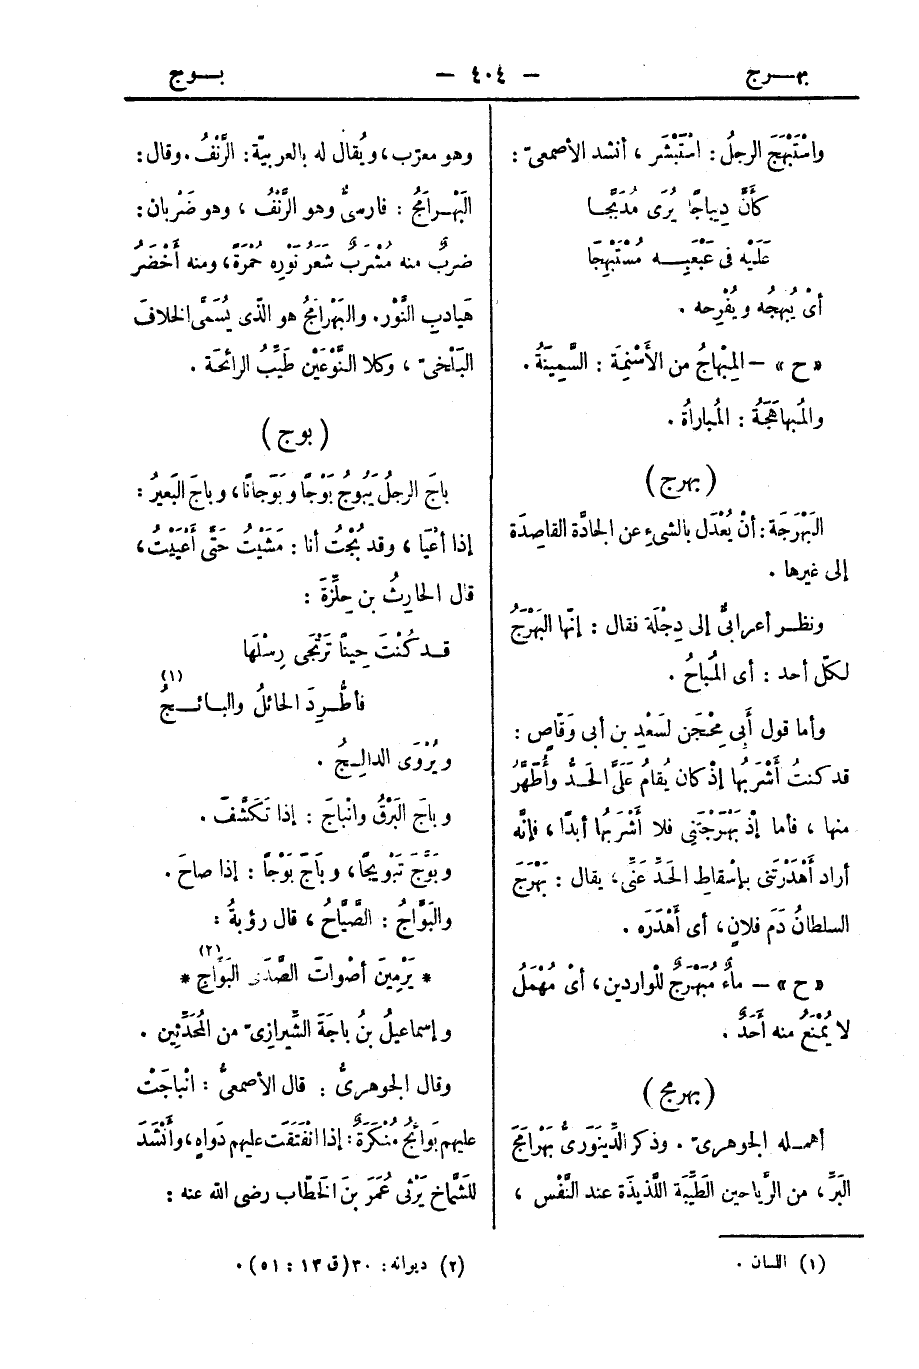 بهـرج
— ٤٠٤ —
بـوج
واسْتَبْهَجَ الرجلُ : اسْتَبْشَر ، أنشد الأصمعىّ :
كأَنَّ دِيباجًا يُرَى مُدَبَّجـا
عَلَيْه فى عَبْعَبِـه مُسْتَبْهِجَا
أىْ يُبهجُه ويُفْرِحه .
« ح » – المِبْهاجُ من الأَسْنِمَة : السَّمِينَةُ .
والمُبهاهَجَةُ : المُباراةُ .
(بهرج)
البَهْرَجَة : أنْ يُعْدَل بالشىءِ عن الجادَّة القاصِدَة
إلى غيرها .
ونظـر أعرابىٌّ إلى دِجْلَة فقال : إنّها البَهْرَجُ
لكلّ أحد : أى المُباحُ .
وأما قول أَبِى مِحْجَن لسَعْدِ بن أبى وَقّاصٍ :
قد كنتُ أَشْرَبُها إذْ كان يُقامُ عَلَىَّ الحَـدُّ وأُطَهَّرُ
منها ، فأما إذْ بَهْرَجْتَنِى فلا أَشْرَبُها أبدًا ، فإنَّه
أراد أَهْدَرْتَنى بإسْقاطِ الحَدِّ عَنِّى ، يقال : بَهْرَجَ
السلطانُ دَمَ فلانٍ ، أى أَهْدَرَه .
« ح » – ماءٌ مُبَهْرَجٌ للْواردين ، أىْ مُهْمَلٌ
لا يُمْنَعُ منه أحَدٌ .
(بهرمج)
أهمـله الجوهرىّ . وذكر الدِّينَوَرىُّ بَهْرامَجَ
البَرِّ ، من الرَّياحين الطَّيِّبَة اللَّذيذَة عند النَّفْس ،
(١) اللسان .
وهو معرّب ، ويُقال له بالعربيّة : الرَّنْفُ . وقال :
البَهْـرامَجُ : فارسىٌّ وهو الرَّنْفُ ، وهو ضَرْبان :
ضربٌ منه مُشْرَبٌ شَعَرُ نَوْرِه حُمْرَةً ، ومنه أخْضَرُ
هَيادبِ النَّوْر . والبَهْرامَجُ هو الّذى يُسَمَّى الخِلافَ
البَلْخىّ ، وكلا النَّوْعَيْن طَيِّبُ الرائحَة .
(بوج)
باجَ الرجلُ يَبُوجُ بَوْجًا وبَوَجانًا ، وباجَ البَعيرُ :
إذا أعْيَا ، وقد بُجْتُ أنا : مَشَيْتُ حَتَّى أَعْيَيْتُ ،
قال الحارِثُ بن حِلِّزَةَ :
قـد كُنْتَ حِينًا تَرْتَجى رِسْلَها
فأطُّـرِدَ الحائلُ والبـائـجُ (١)
ويُرْوَى الدالـجُ .
وباجَ البَرْقُ وانْباجَ : إذا تَكَشَّفَ .
وبَوَّجَ تَبْويجًا ، وباجَ بَوْجاً : إذا صاحَ .
والبَوّاجُ : الصَّيّاحُ ، قال رؤبةُ :
* يَرْمِينَ أصْواتَ الصَّدَى البَوّاجِ (٢) *
وإسماعيلُ بنُ باجَةَ الشِّيرازىّ من المُحَدِّثين .
وقال الجوهرىُّ : قال الأصمعىُّ : انْباجَتْ
عليهم بَوائجُ مُنْكَرَةٌ : إذا انْفَتَقَت عليهم دَواهٍ ، وأنْشَدَ
للشَّمّاخ يَرْثى عُمَرَ بنَ الخَطّاب رضى الله عنه :
(٢) ديوانه : ٣٠ (ق ١٣ : ٥١) .